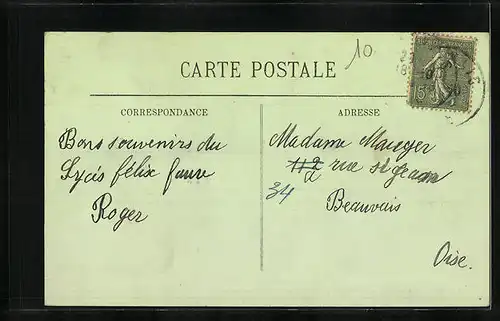 10
CARTE POSTALE
CORRESPONDANCE
ADRESSE
Bons souvenirs du
Lycés félix faure
Roger
Madame Mauger
112 rue st Jean
2
34
Beauvais
Oise.
15